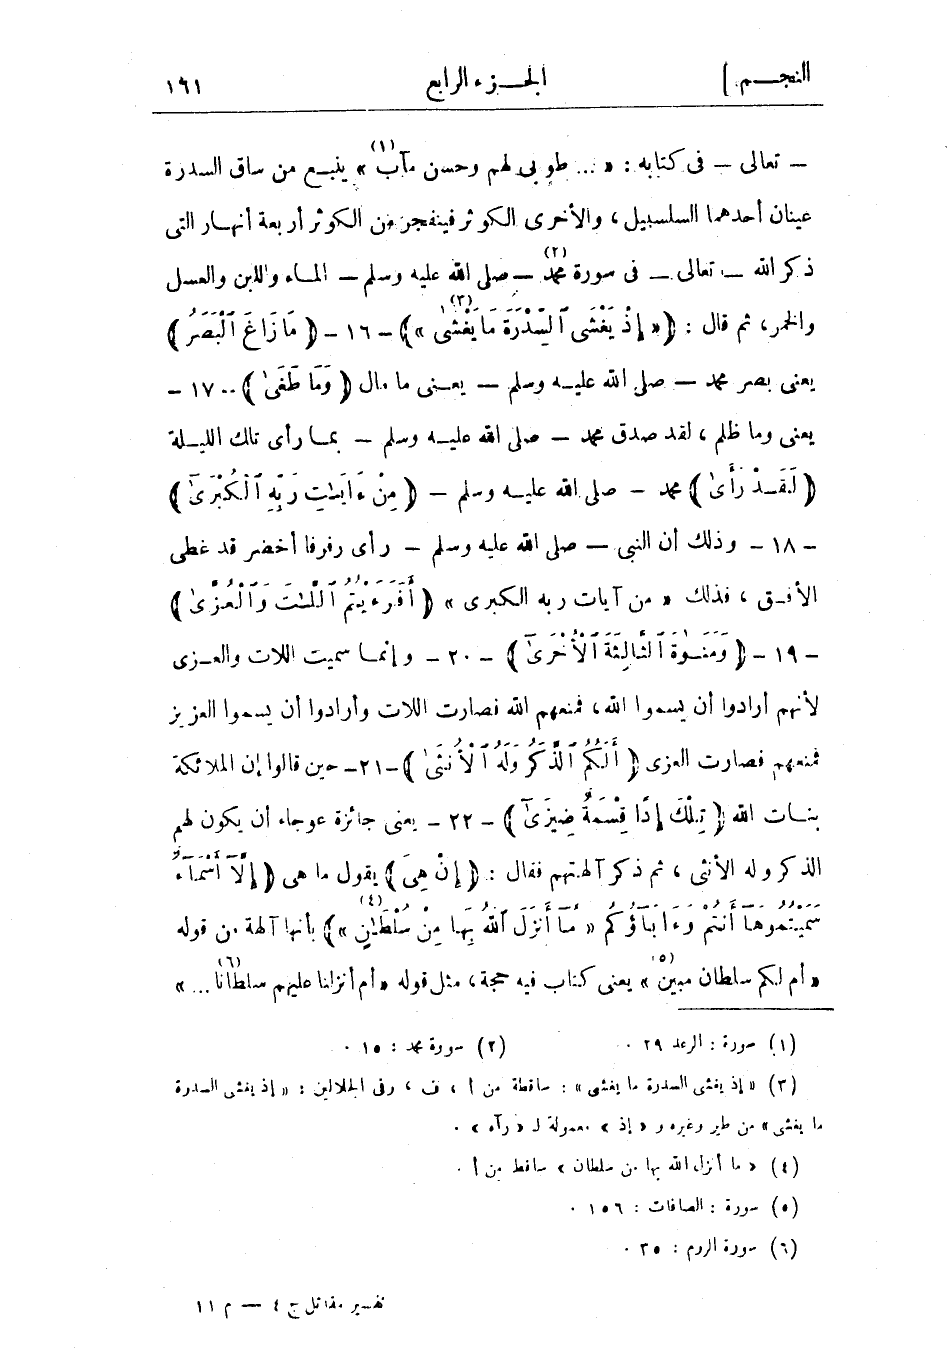 النجم ]
الجزء الرابع
١٦١
ــ تعالى ــ فى كتابه : « ... طوبى لهم وحسن مآب(١) » ينبع من ساق السدرة
عينان أحدهما السلسبيل ، والأخرى الكوثر فينفجر من الكوثر أربعة أنهار التى
ذكر الله ــ تعالى ــ فى سورة محمد(٢) ــ صلى الله عليه وسلم ــ الماء واللبن والعسل
والخمر ، ثم قال : ﴿ « إِذْ يَغْشَى ٱلسِّدْرَةَ مَا يَغْشَىٰ(٣) » ﴾ - ١٦ - ﴿ مَا زَاغَ ٱلْبَصَرُ ﴾
يعنى بصر محمد ــ صلى الله عليه وسلم ــ يعنى ما مال ﴿ وَمَا طَغَىٰ ﴾ .. ١٧ -
يعنى وما ظلم ، لقد صدق محمد ــ صلى الله عليه وسلم ــ بما رأى تلك الليلة
﴿ لَقَدْ رَأَىٰ ﴾ محمد - صلى الله عليه وسلم - ﴿ مِنْ ءَايَـٰتِ رَبِّهِ ٱلْكُبْرَىٰٓ ﴾
- ١٨ - وذلك أن النبى ــ صلى الله عليه وسلم - رأى رفرفا أخضر قد غطى
الأفق ، فذلك « من آيات ربه الكبرى » ﴿ أَفَرَءَيْتُمُ ٱللَّـٰتَ وَٱلْعُزَّىٰ ﴾
- ١٩ - ﴿ وَمَنَوٰةَ ٱلثَّالِثَةَ ٱلْأُخْرَىٰٓ ﴾ - ٢٠ - وإنما سميت اللات والعزى
لأنهم أرادوا أن يسموا الله ، فمنعهم الله فصارت اللات وأرادوا أن يسموا العزيز
فمنعهم فصارت العزى ﴿ أَلَكُمُ ٱلذَّكَرُ وَلَهُ ٱلْأُنثَىٰ ﴾ - ٢١ - حين قالوا إن الملائكة
بنات الله ﴿ تِلْكَ إِذًا قِسْمَةٌ ضِيزَىٰٓ ﴾ - ٢٢ - يعنى جائزة عوجاء أن يكون لهم
الذكر وله الأنثى ، ثم ذكر آلهتهم فقال : ﴿ إِنْ هِىَ ﴾ يقول ما هى ﴿ إِلَّآ أَسْمَآءٌ
سَمَّيْتُمُوهَآ أَنتُمْ وَءَابَآؤُكُم « مَّآ أَنزَلَ ٱللَّهُ بِهَا مِنْ سُلْطَـٰنٍ(٤) » ﴾ بأنها آلهة من قوله
« أم لكم سلطان مبين(٥) » يعنى كتاب فيه حجة ، مثل قوله « أم أنزلنا عليهم سلطانا(٦) ... »
(١) سورة : الرعد ٢٩ .
(٢) سورة محمد : ١٥ .
(٣) « إذ يغشى السدرة ما يغشى » : ساقطة من أ ، ف ، وفى الجلالين : « إذ يغشى السدرة
ما يغشى » من طير وغيره و « إذ » معمولة لـ « رآه » .
(٤) « ما أنزل الله بها من سلطان » ساقط من أ .
(٥) سورة : الصافات : ١٥٦ .
(٦) سورة الروم : ٣٥ .
تفسير مقاتل ج ٤ ــ م ١١